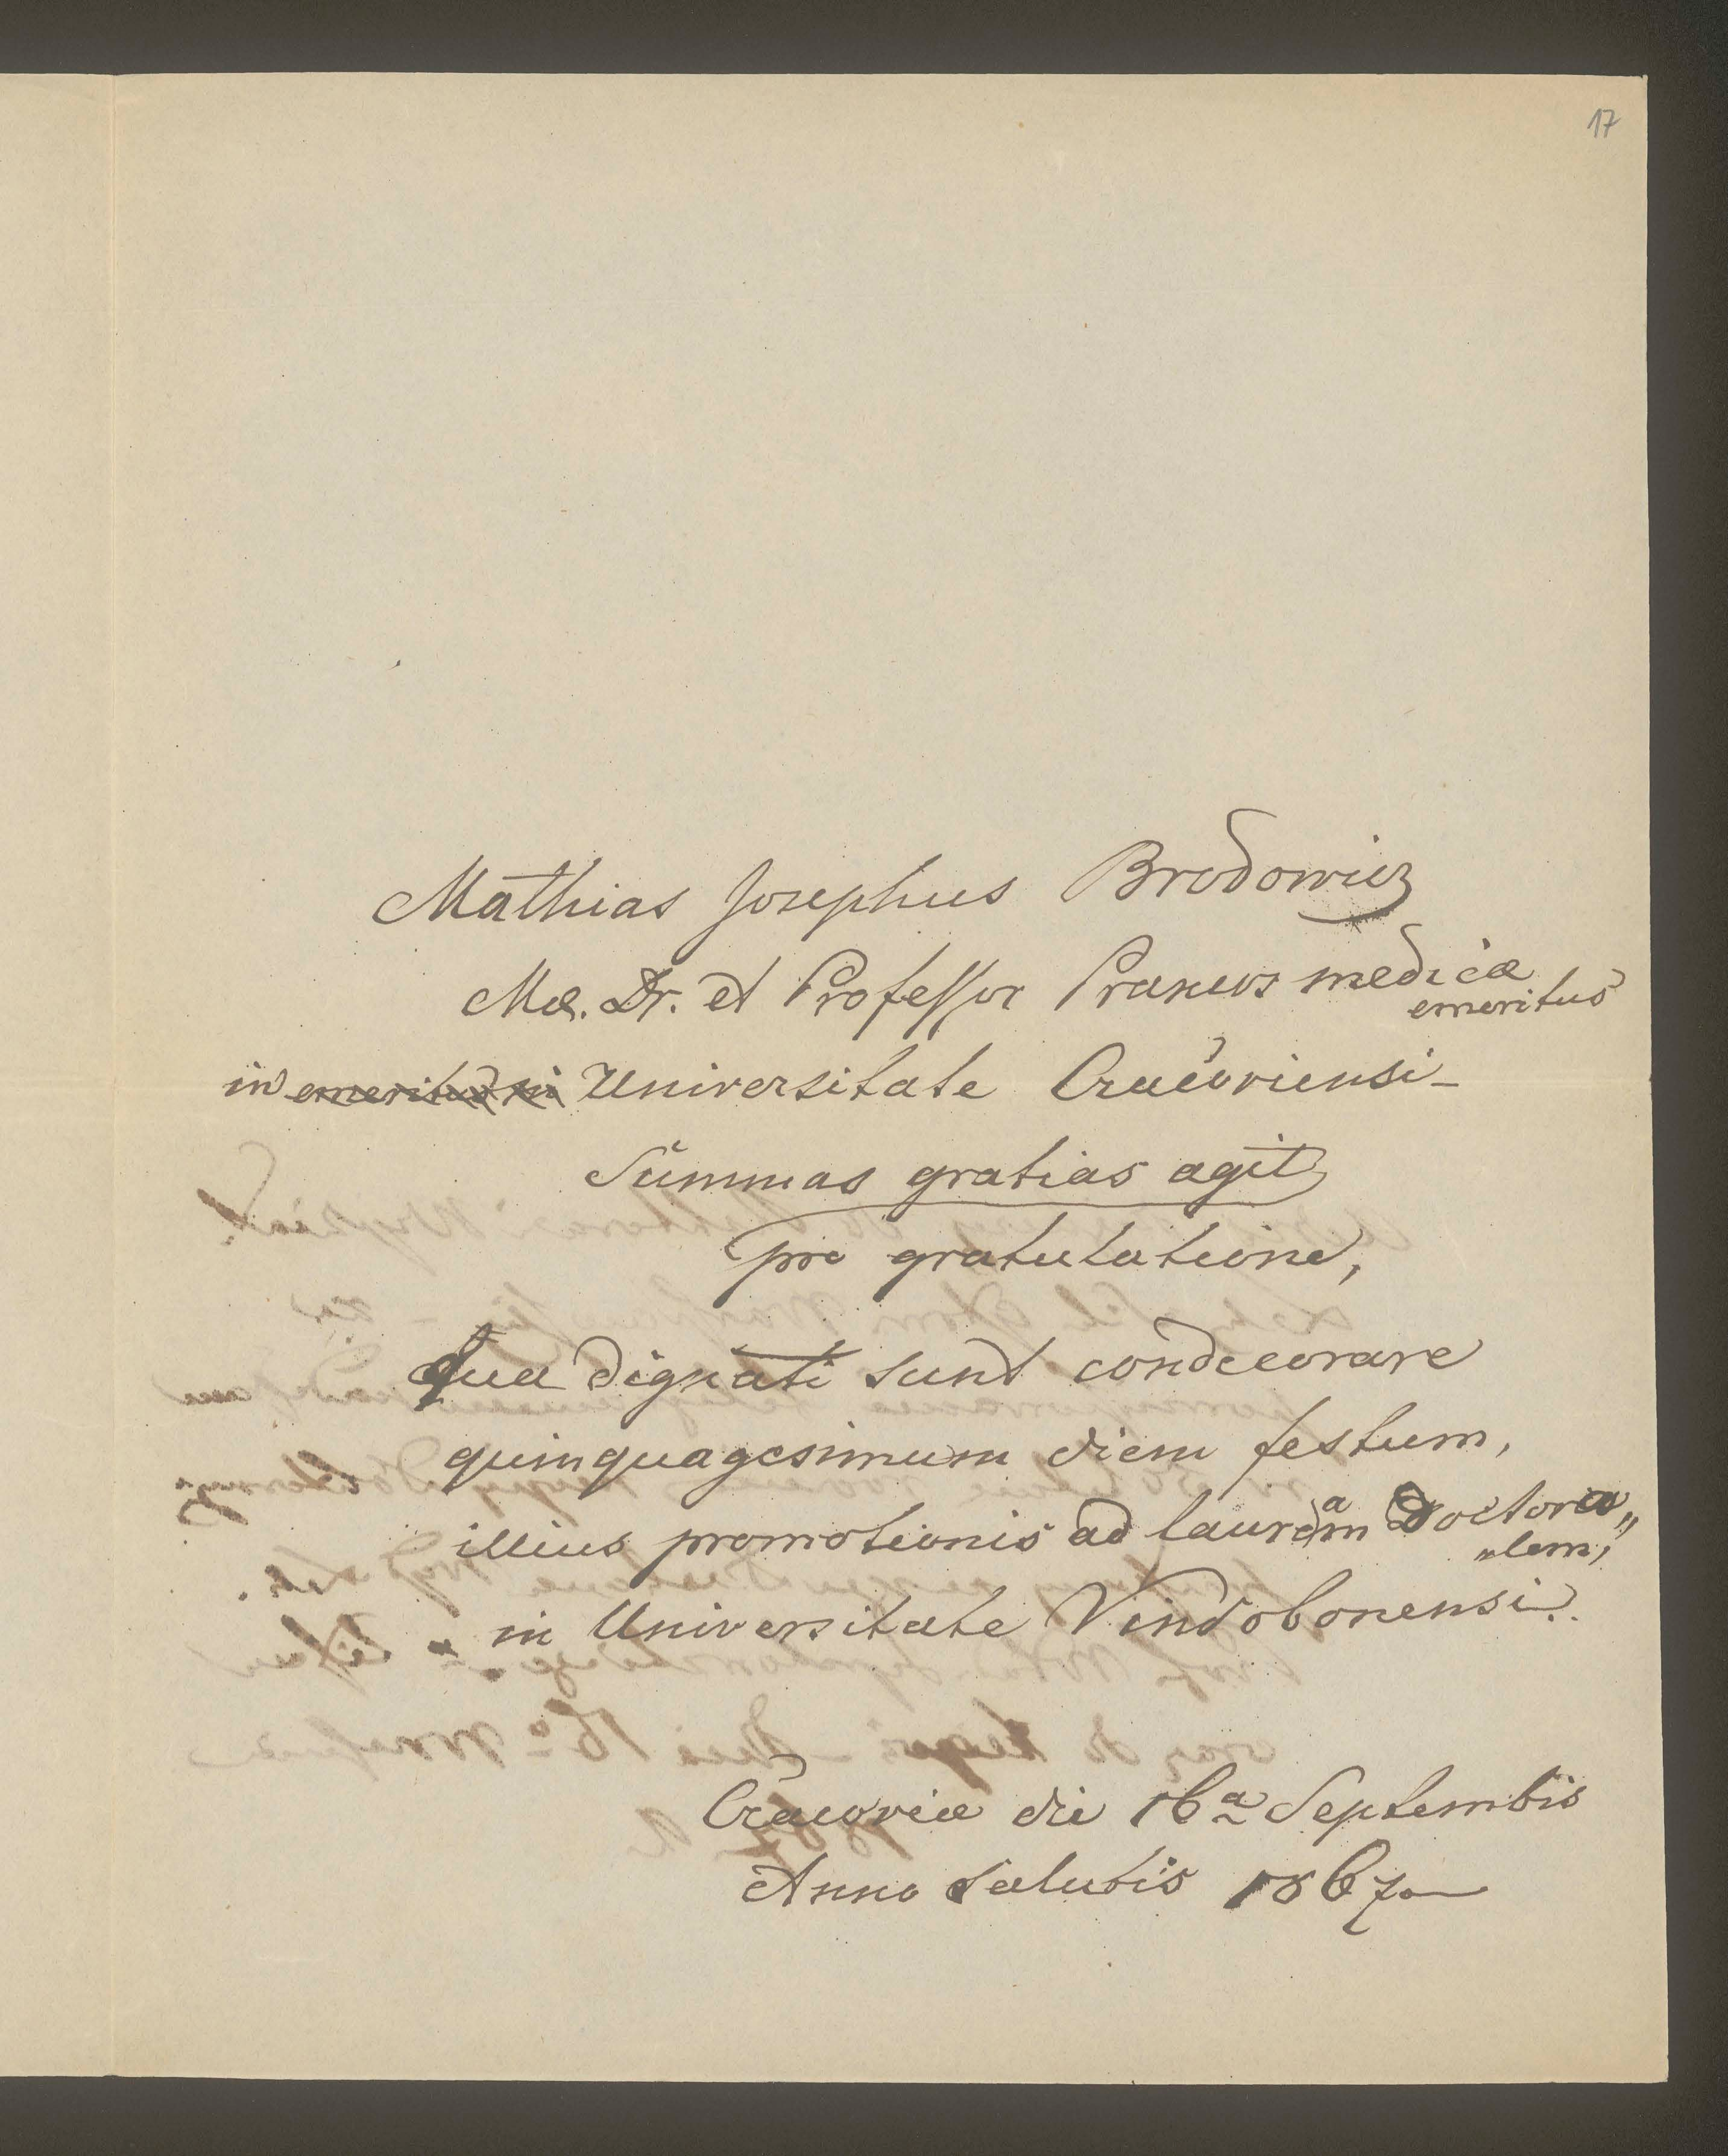 17
Mathias Josephus Brodowicz
Me. Dr. et Professor Praxeos medicæ
emeritus
in emeritus in Universitate Cracoviensi
Summas gratias agit
pro gratulatione,
qua dignati sunt condecorare
quinquagesimum diem festum,
illius promotionis ad lauream Doctora„
„lem,
in Universitate Vindobonensi.
Cracoviæ die 16ª Septembis
Anno Salutis 1867